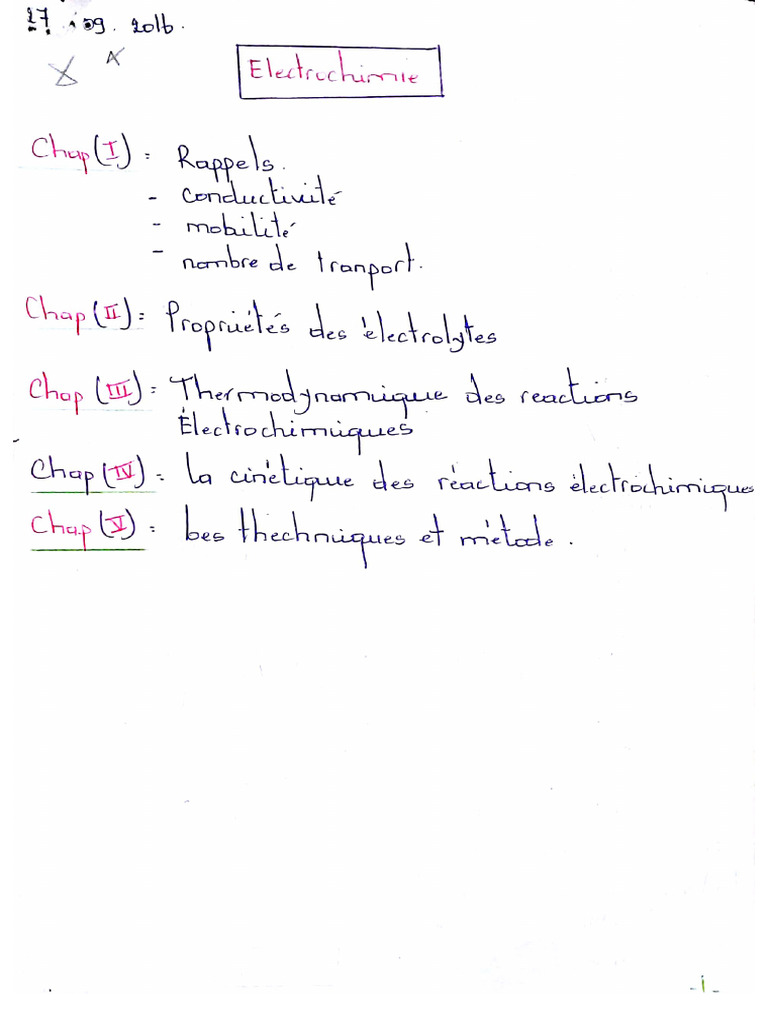 27.09.2016.
Electrochimie
Chap(I): Rappels.
- conductivité
- mobilité
- nombre de tranport.
Chap(II): Propriétés des électrolytes
Chap(III): Thermodynamique des reactions
Électrochimiques
Chap(IV): la cinétique des réactions électrochimiques
Chap(V): les thechniques et métode.
-i-